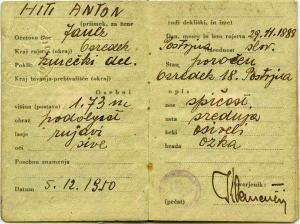 HITI ANTON
(priimek, za žene
Očetovo ime Janez
Kraj rojstva (okraj)
Poklic kmečki del.
Kraj bivanja-prebivališče (okraj)
Osebni
višina (postava) 1.73 m
obraz podolgast
lasje rujavi
oči sive
Posebna znamenja
Datum 5.12.1950
tudi dekliški, in ime)
Dan, mesec in leto rojstva 29.11.1888
Postojna Narodnost slov.
Stan poročen
18. Postojna
opis
nos
usta srednja
brki osiveli
brada ozka
(pečat)